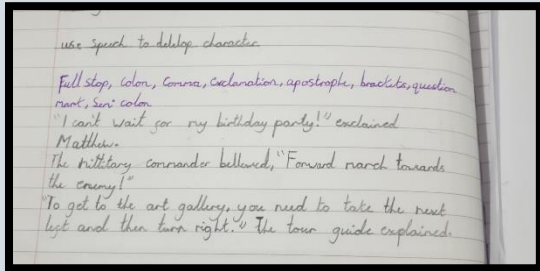 use speech to delelop character.
Full stop, colon, comma, exclamation, apostrophe, brackets, question
mark, semi colon
"I can't wait for my birthday party!" exclaimed
Matthew.
The millitary commander bellowed, "Forward march towards
the enemy!"
"To get to the art gallery, you need to take the next
left and then turn right." The tour guide explained.